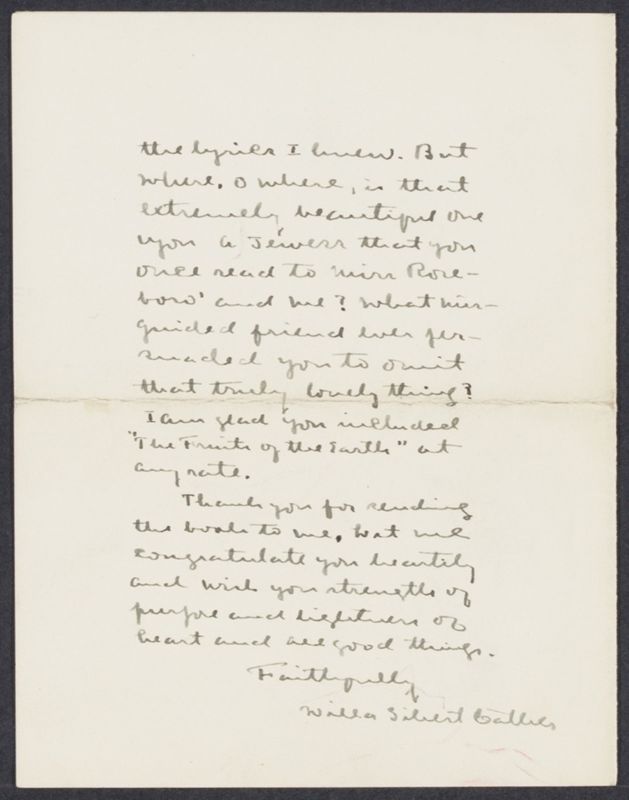 the lyrics I knew. But
where, O where, is that
extremely beautiful one
upon a Jewess that you
once read to Miss Rose-
boro' and me? What mis-
guided friend ever per-
suaded you to omit
that truly lovely thing?
I am glad you included
"The Fruits of the Earth" at
any rate.
Thank you for sending
the book to me. Let me
congratulate you heartily
and wish you strength of
purpose and lightness of
heart and all good things.
Faithfully
Willa Sibert Cather